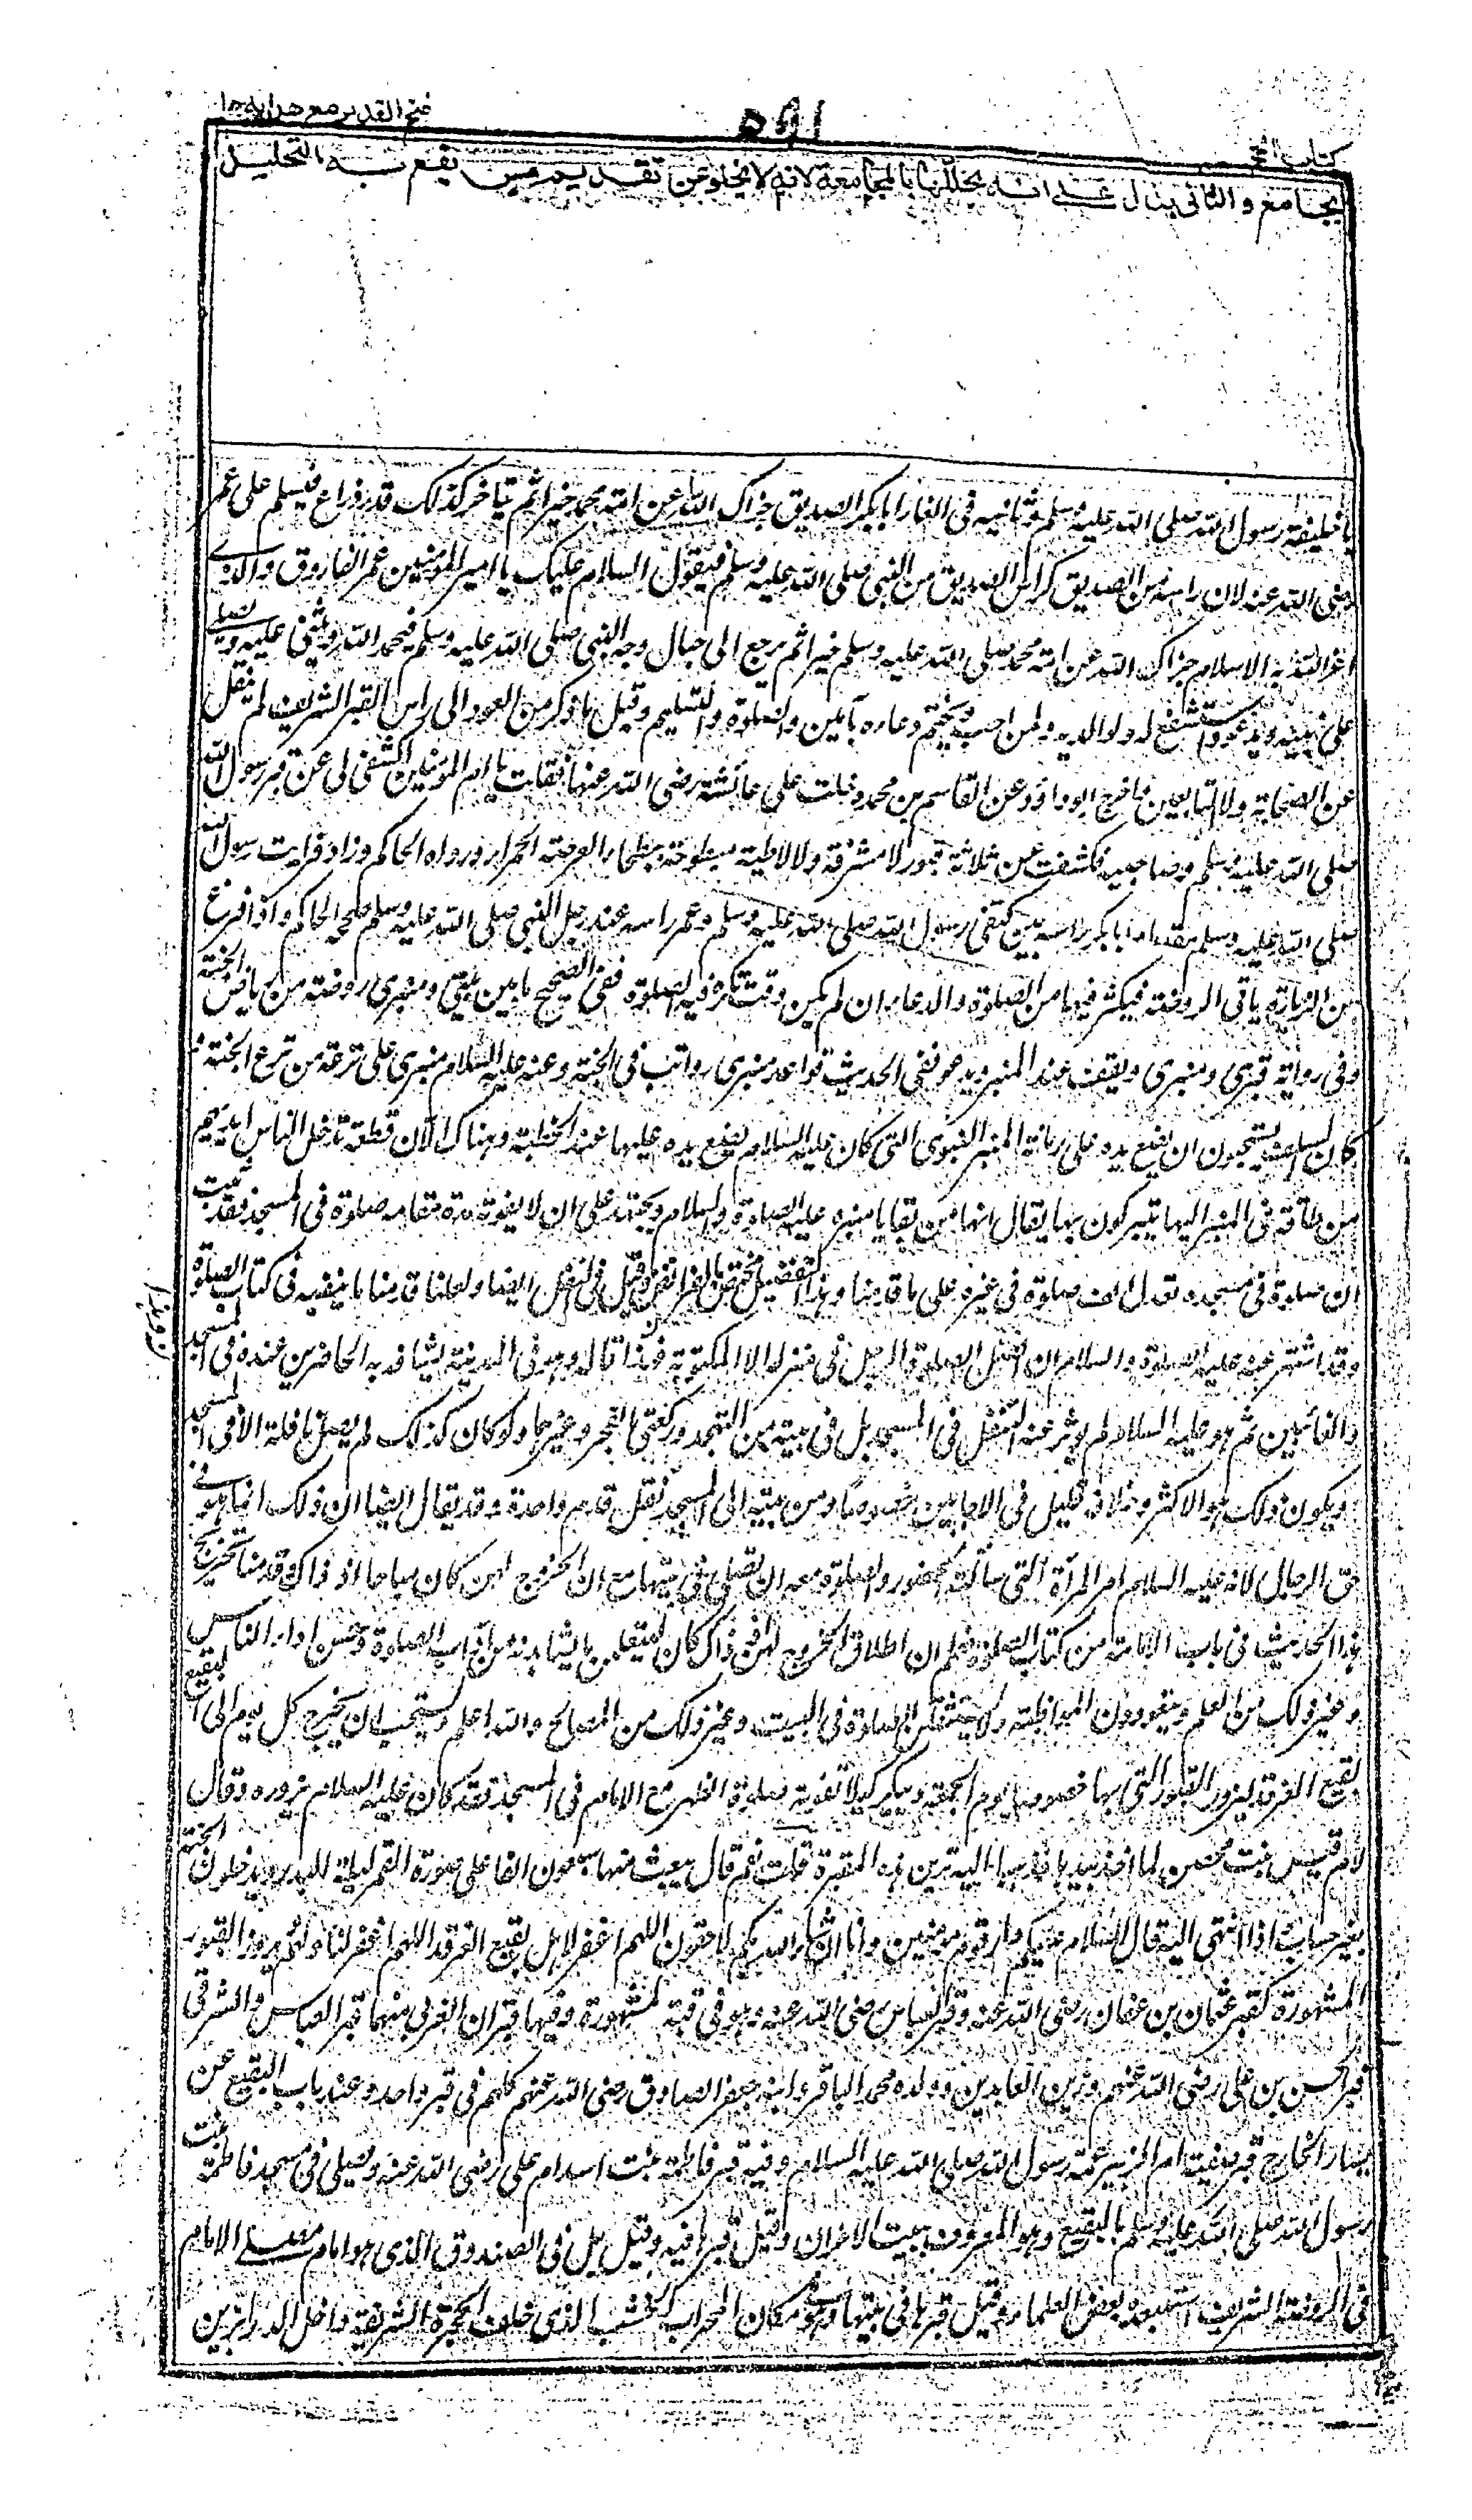 كتاب الحج
٥٩١
فتح القدير مع هدايه جا
يجامع والثانى يدل على انه يحللها بالمجامعة لانه لا يخلو عن تقديم مس يقع به التحليل
يا خليفة رسول الله صلى الله عليه وسلم وثانيه فى الغار ابا بكر الصديق جزاك الله عن امة محمد خيرا ثم يتاخر كذلك قدر ذراع فيسلم على عمر
رضى الله عنه لان راسه من الصديق كراس الصديق من النبى صلى الله عليه وسلم فيقول السلام عليك يا امير المؤمنين عمر الفاروق والذى
اعز الله به الاسلام جزاك الله عن امة محمد صلى الله عليه وسلم خيرا ثم يرجع الى حيال وجه النبى صلى الله عليه وسلم فيحمد الله ويثنى عليه ويصلى
على نبيه ويدعو ويستشفع له ولوالديه ولمن احب ويختم دعاءه بآمين والصلوة والتسليم وقيل ما ذكر من العود الى راس القبر الشريف لم ينقل
عن الصحابة ولا التابعين واخرج ابو داؤد عن القاسم بن محمد دخلت على عائشة رضى الله عنها فقلت يا ام المؤمنين اكشفى لى عن قبر رسول الله
صلى الله عليه وسلم وصاحبيه فكشفت عن ثلاثة قبور لا مشرفة ولا لاطية مبطوحة ببطحاء العرصة الحمراء ورواه الحاكم وزاد فرايت رسول الله
صلى الله عليه وسلم مقدما وابا بكر راسه بين كتفى رسول الله صلى الله عليه وسلم وعمر راسه عند رجل النبى صلى الله عليه وسلم صححه الحاكم واذا فرغ
من الزيارة ياتى الروضة فيكثر فيها من الصلوة والدعاء ان لم يكن وقت تكره فيه الصلوة ففى الصحيح ما بين بيتى ومنبرى روضة من رياض الجنة
وفى رواية قبرى ومنبرى ويقف عند المنبر ويدعو ففى الحديث قواعد منبرى رواتب فى الجنة وعنه عليه السلام منبرى على ترعة من ترع الجنة و
كان السلف يستحبون ان يضع يده على رمانة المنبر النبوى التى كان عليه السلام يضع يده عليها عند الخطبة وهناك الآن قطعة تدخل الناس ايديهم
من طاقة فى المنبر اليها يتبركون بها يقال انها من بقايا منبره عليه الصلوة والسلام ويجتهد على ان لا يفوته مدة مقامه صلوة فى المسجد فقد ثبت
ان صلوة فى مسجده تعدل الف صلوة فى غيره على ما قدمنا وهذا التفضيل مختص بالفرائض وقيل فى النفل ايضا ولعلنا قدمنا ما ينفيه فى كتاب الصلوة
وقد اشتهر عنه عليه الصلوة والسلام ان افضل الصلوة الرجل فى منزله الا المكتوبة فهذا قاله وهو فى المدينة يشافه به الحاضرين عنده فى المسجد
والغائبين ثم هو عليه السلام لم يؤثر عنه التنفل فى المسجد بل فى بيته من التهجد وركعتى الفجر وغيرهما ولو كان كذلك لم يصل نافلة الا فى المسجد
ويكون ذلك هو الاكثر وخلافه قليل فى الاحايين خصوصا ومن بيته الى المسجد نقل قدم واحدة وقد يقال ايضا ان ذلك انما هو فى
حق الرجال لانه عليه السلام امر المرأة التى سألته الحضور والصلوة معه ان تصلى فى بيتها مع ان الخروج لهن كان مباحا اذ ذاك وقدمنا تخريج
هذا الحديث فى باب الامامة من كتاب الصلوة فعلم ان اطلاق الخروج لهن اذ ذاك كان ليتعلمن ما يشاهدنه من آداب الصلوة وحسن اداء الناس
وغير ذلك من العلم ويتعودون المواظبة ولا يستثقلن الصلوة فى البيت وغير ذلك من المصالح والله اعلم ويستحب ان يخرج كل يوم الى البقيع
بقيع الغرقد ليزور القبور التى بها خصوصا يوم الجمعة ويبكر كيلا تفوته صلوة الظهر مع الامام فى المسجد فقد كان عليه السلام يزوره وقال
لام قيس بنت محصن لما اخذ بيدها فذهبا اليه ترين هذه المقبرة قلت نعم قال يبعث منها سبعون الفا على صورة القمر ليلة البدر ويدخلون الجنة
بغير حساب اذا انتهى اليه قال السلام عليكم دار قوم مؤمنين وانا ان شاء الله بكم لاحقون اللهم اغفر لاهل بقيع الغرقد اللهم اغفر لنا ولهم ويزور القبور
المشهورة كقبر عثمان بن عفان رضى الله عنه وقبر العباس رضى الله عنه وهو فى قبة المشهورة وفيها قبران الغربى منهما قبر العباس والشرقى
قبر الحسن بن على رضى الله عنهم وزين العابدين وولده محمد الباقر وابنه جعفر الصادق رضى الله عنهم كلهم فى قبر واحد وعند باب البقيع عن
يسار الخارج قبر صفية ام الزبير عمة رسول الله صلى الله عليه السلام وفيه قبر فاطمة بنت اسد ام على رضى الله عنه ويصلى فى مسجد فاطمة بنت
رسول الله صلى الله عليه وسلم بالبقيع وهو المعروف ببيت الاحزان وقيل قبرها فيه وقيل بل فى الصندوق الذى هو امام مصلى الامام
فى الروضة الشريفة استبعده بعض العلماء وقيل قبرها فى بيتها وهو مكان المحراب الخشب الذى خلف الحجرة الشريفة داخل الدرابزين